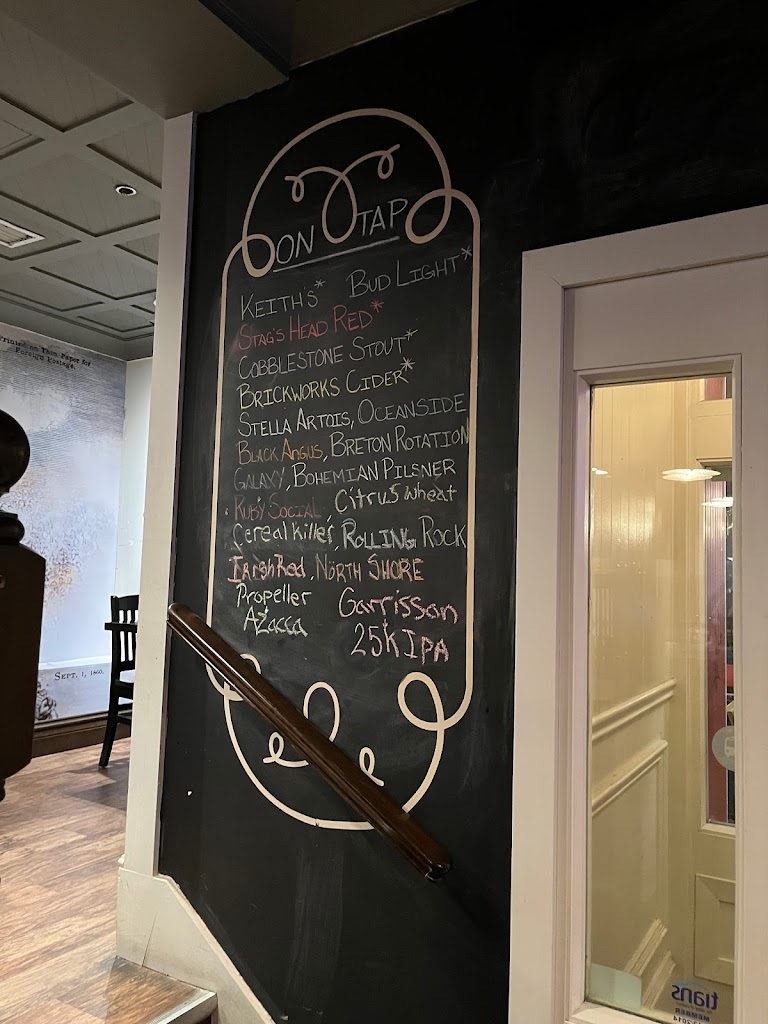 ON TAP
KEITH'S* BUD LIGHT*
STAG'S HEAD RED*
COBBLESTONE STOUT*
BRICKWORKS CIDER*
STELLA ARTOIS, OCEANSIDE
BLACK ANGUS, BRETON ROTATION
GALAXY, BOHEMIAN PILSNER
RUBY SOCIAL, Citrus Wheat
Cereal Killer, ROLLING ROCK
IRishRed, NORTH SHORE
Propeller Garrisson
AZacca 25K IPA
Printed on Thin Paper for
Foreign Postage.
SEPT. 1, 1860.
tians
MEMBER